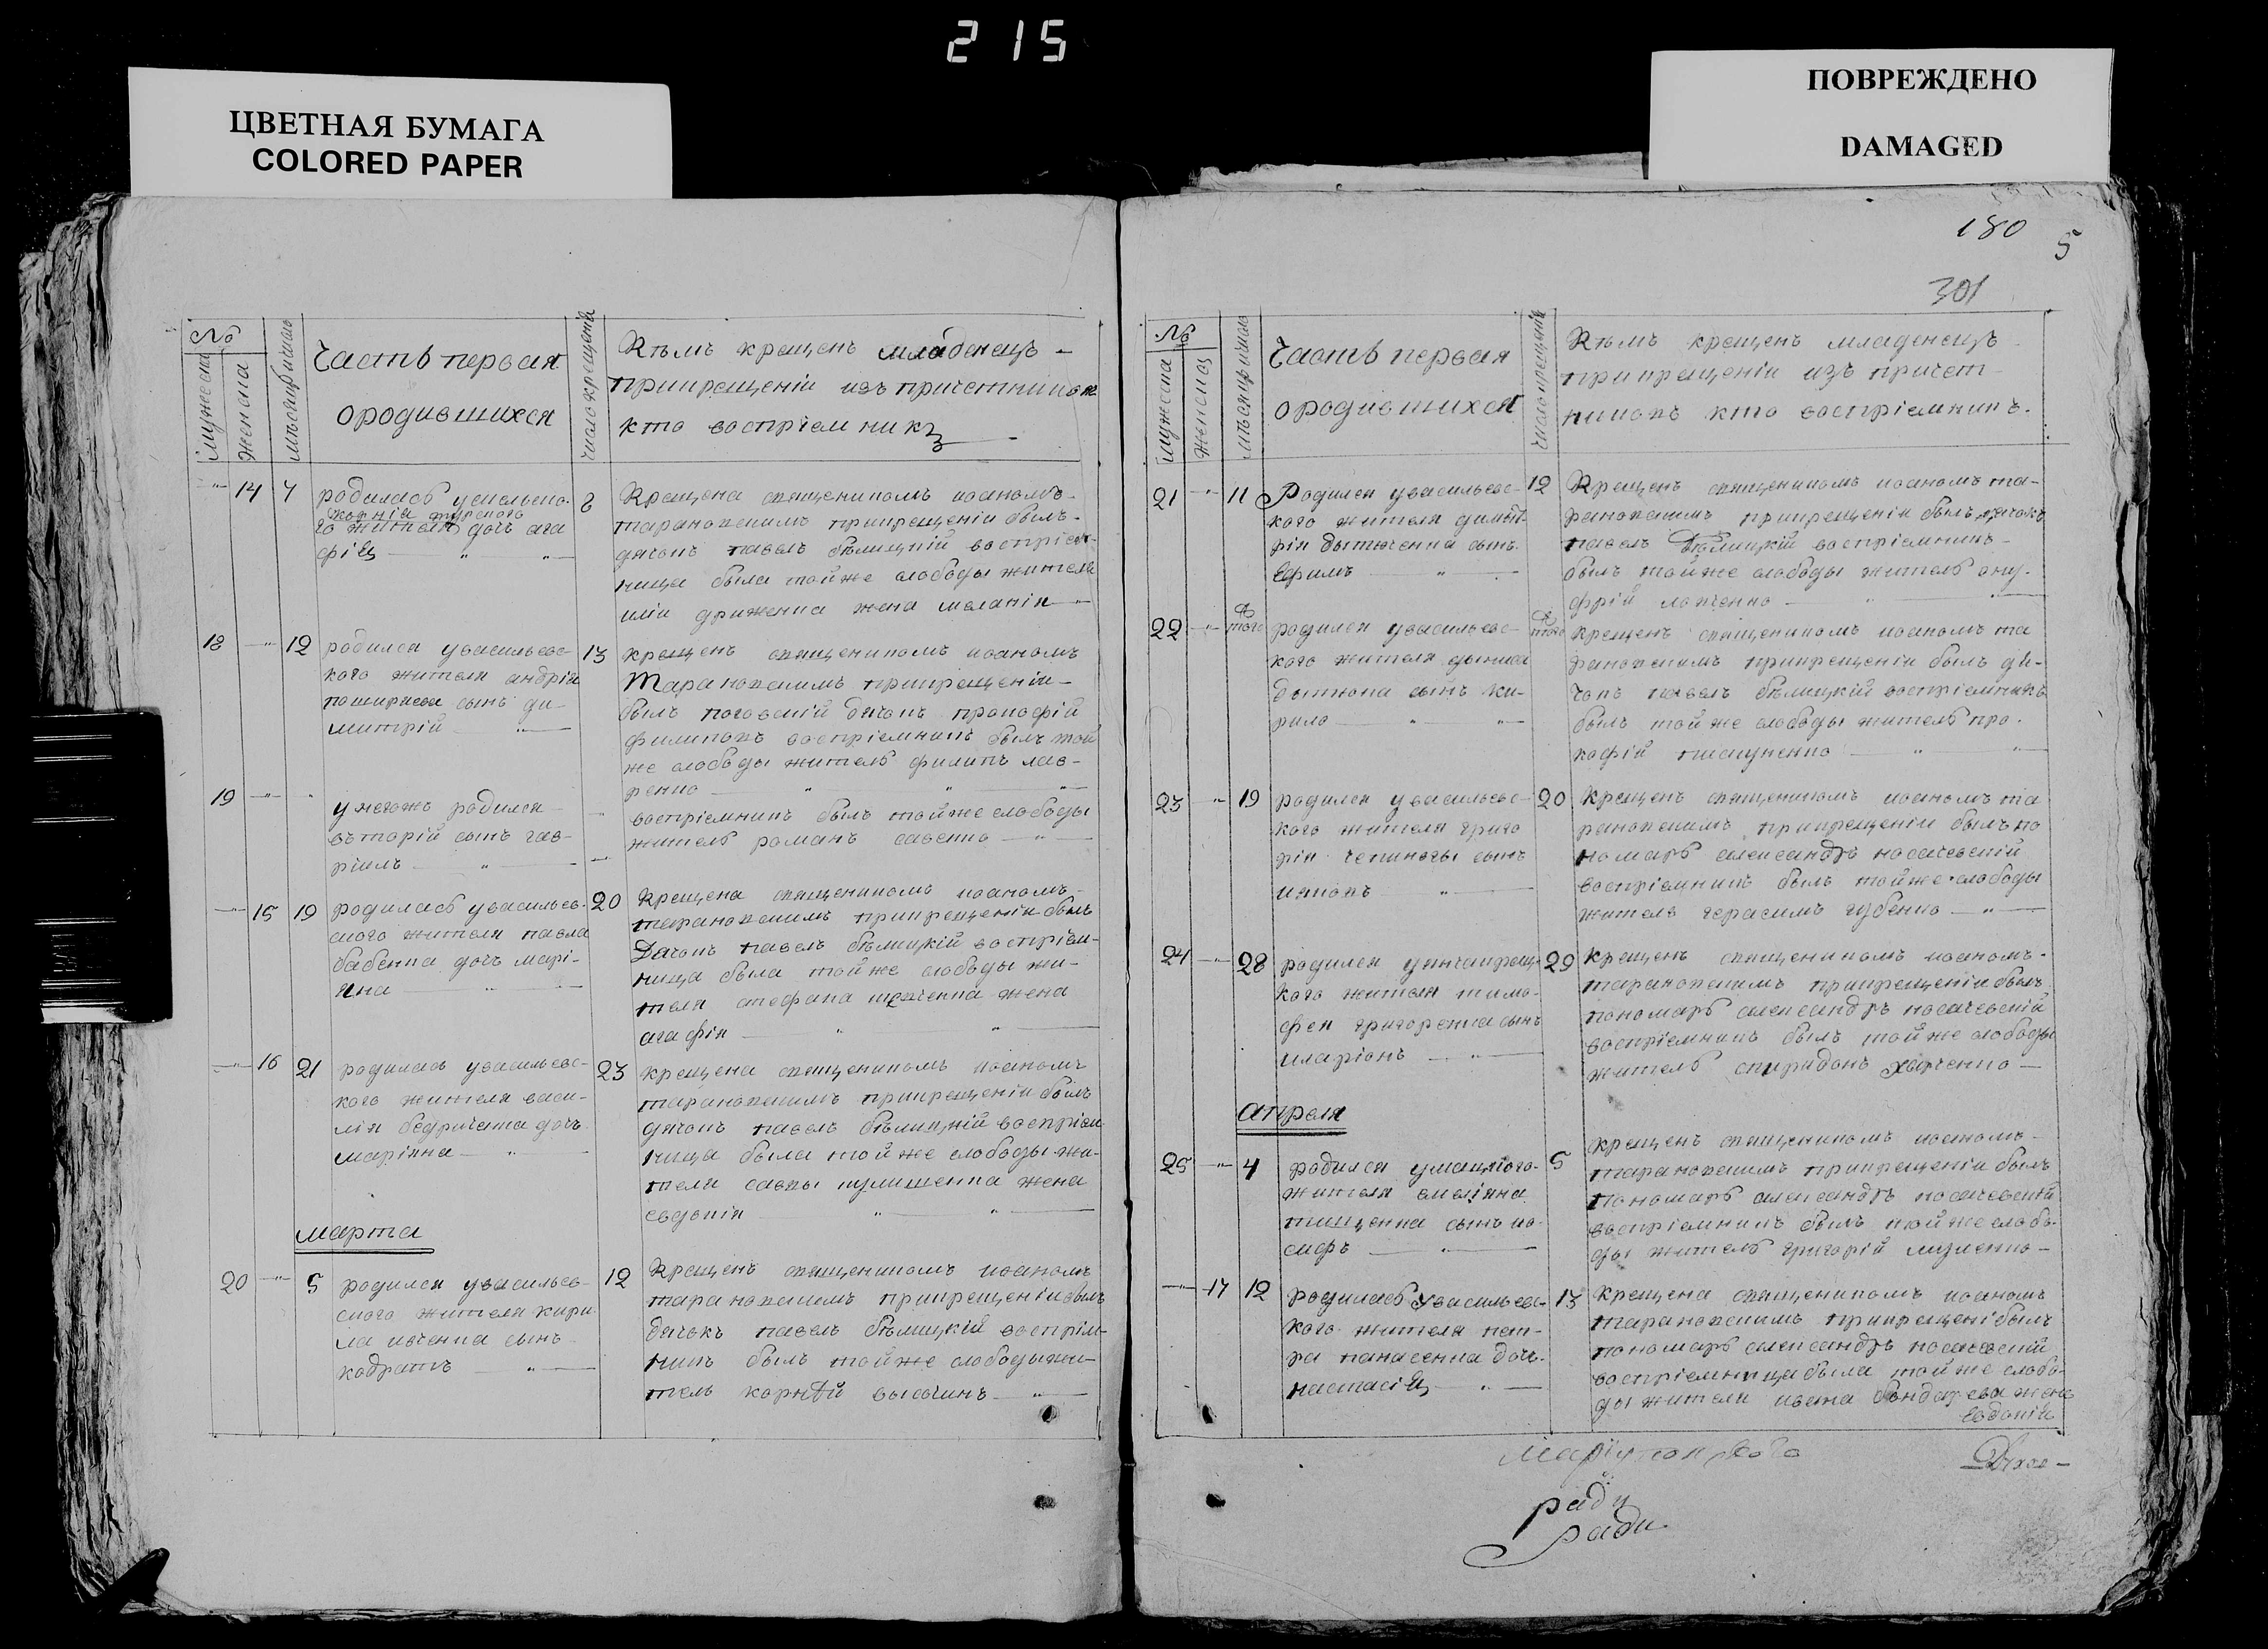 215
ЦВЕТНАЯ БУМАГА
COLORED PAPER
ПОВРЕЖДЕНО
DAMAGED
180
5
301
№
мужеска
женска
Часть первая
ородившихся
число крещенія
Кѣмъ крещенъ младенецъ -
прикрещеніи изъ причетниковъ
кто воспріемникъ
14
родилась
го жителя дочь ага
фія
Крещена священикомъ иоаномъ
тарановскимъ прикрещеніи былъ
дячокъ павелъ бѣлицкій воспріем-
ница была тойже слободы жителя
жена меланія
18 12 родился увасильевс-
кого жителя андрія
сынъ ди-
митрій
13 крещенъ священикомъ иоаномъ
Тарановскимъ прикрещеніи
былъ дячокъ прокофій
воспріемникъ былъ той
же слободы житель филипъ лав-
ренко
19
унегожъ родился
вторій сынъ гав-
ріилъ
воспріемникъ былъ тойже слободы
житель романъ савенко
15 19 родилась увасильев-
ского жителя павла
бабенка дочь марі-
яна
20 Крещена священикомъ иоаномъ
тарановскимъ прикрещеніи былъ
Дячокъ павелъ бѣлицкій воспріем-
ница была тойже слободы жи-
теля стефана жена
агафія
16 21 родилась увасильевс-
кого жителя васи-
лія дочь
маріяна
23 крещена священикомъ иоаномъ
тарановскимъ прикрещеніи былъ
дячокъ павелъ бѣлицкій воспріем
ница была тойже слободы жи-
теля савы жена
евдокія
марта
20 5 родился увасильев-
ского жителя кири
ла ивченка сынъ
кодратъ
12 Крещенъ священикомъ иоаномъ
тарановскимъ прикрещеніи былъ
дячокъ павелъ бѣлицкій воспріем-
никъ былъ тойже слободы жи-
тель корнѣй высочинъ
№
мужеска
Часть первая
ородившихся
число крещенія
Кѣмъ крещенъ младенецъ
прикрещеніи изъ причет-
никовъ кто воспріемникъ.
21 11 Родился увасильевс-
кого жителя димит-
рія сынъ
Ефимъ
12 Крещенъ священикомъ иоаномъ та-
рановскимъ прикрещеніи былъ дячокъ
павелъ Бѣлицкій воспріемникъ
былъ тойже слободы житель ону-
фрій
22 того родился увасильевс-
кого жителя
сынъ ки-
рило
того крещенъ священикомъ иоаномъ та
рановскимъ прикрещеніи былъ дя-
чокъ павелъ бѣлицкій воспріемникъ
былъ тойже слободы житель про-
кофій
23 19 родился увасильевс-
кого жителя григо
рія чепиноги сынъ
20 Крещенъ священикомъ иоаномъ та
рановскимъ прикрещеніи былъ по
номарь александръ носачевскій
воспріемникъ былъ тойже слободы
житель герасимъ губенко
24 28 родился
кого жителя тимо-
фея григоренка сынъ
иларіонъ
29 крещенъ священикомъ иоаномъ
тарановскимъ прикрещеніи былъ
пономарь александръ носачевскій
воспріемникъ былъ тойже слободы
житель спиридонъ харченко
апреля
25 4 родился
жителя емеліяна
сынъ ио-
сифъ
5 крещенъ священикомъ иоаномъ
тарановскимъ прикрещеніи былъ
пономарь александръ носачевскій
воспріемникъ былъ тойже слобо-
ды житель григорій
17 12 родилась увасильевс-
кого жителя пет-
ра панасенка дочь
настасія
13 крещена священикомъ иоаномъ
тарановскимъ прикрещені былъ
пономарь александръ носачевскій
воспріемница была тойже слобо-
ды жителя ивана бондарева жена
Евдокія
ради
ради